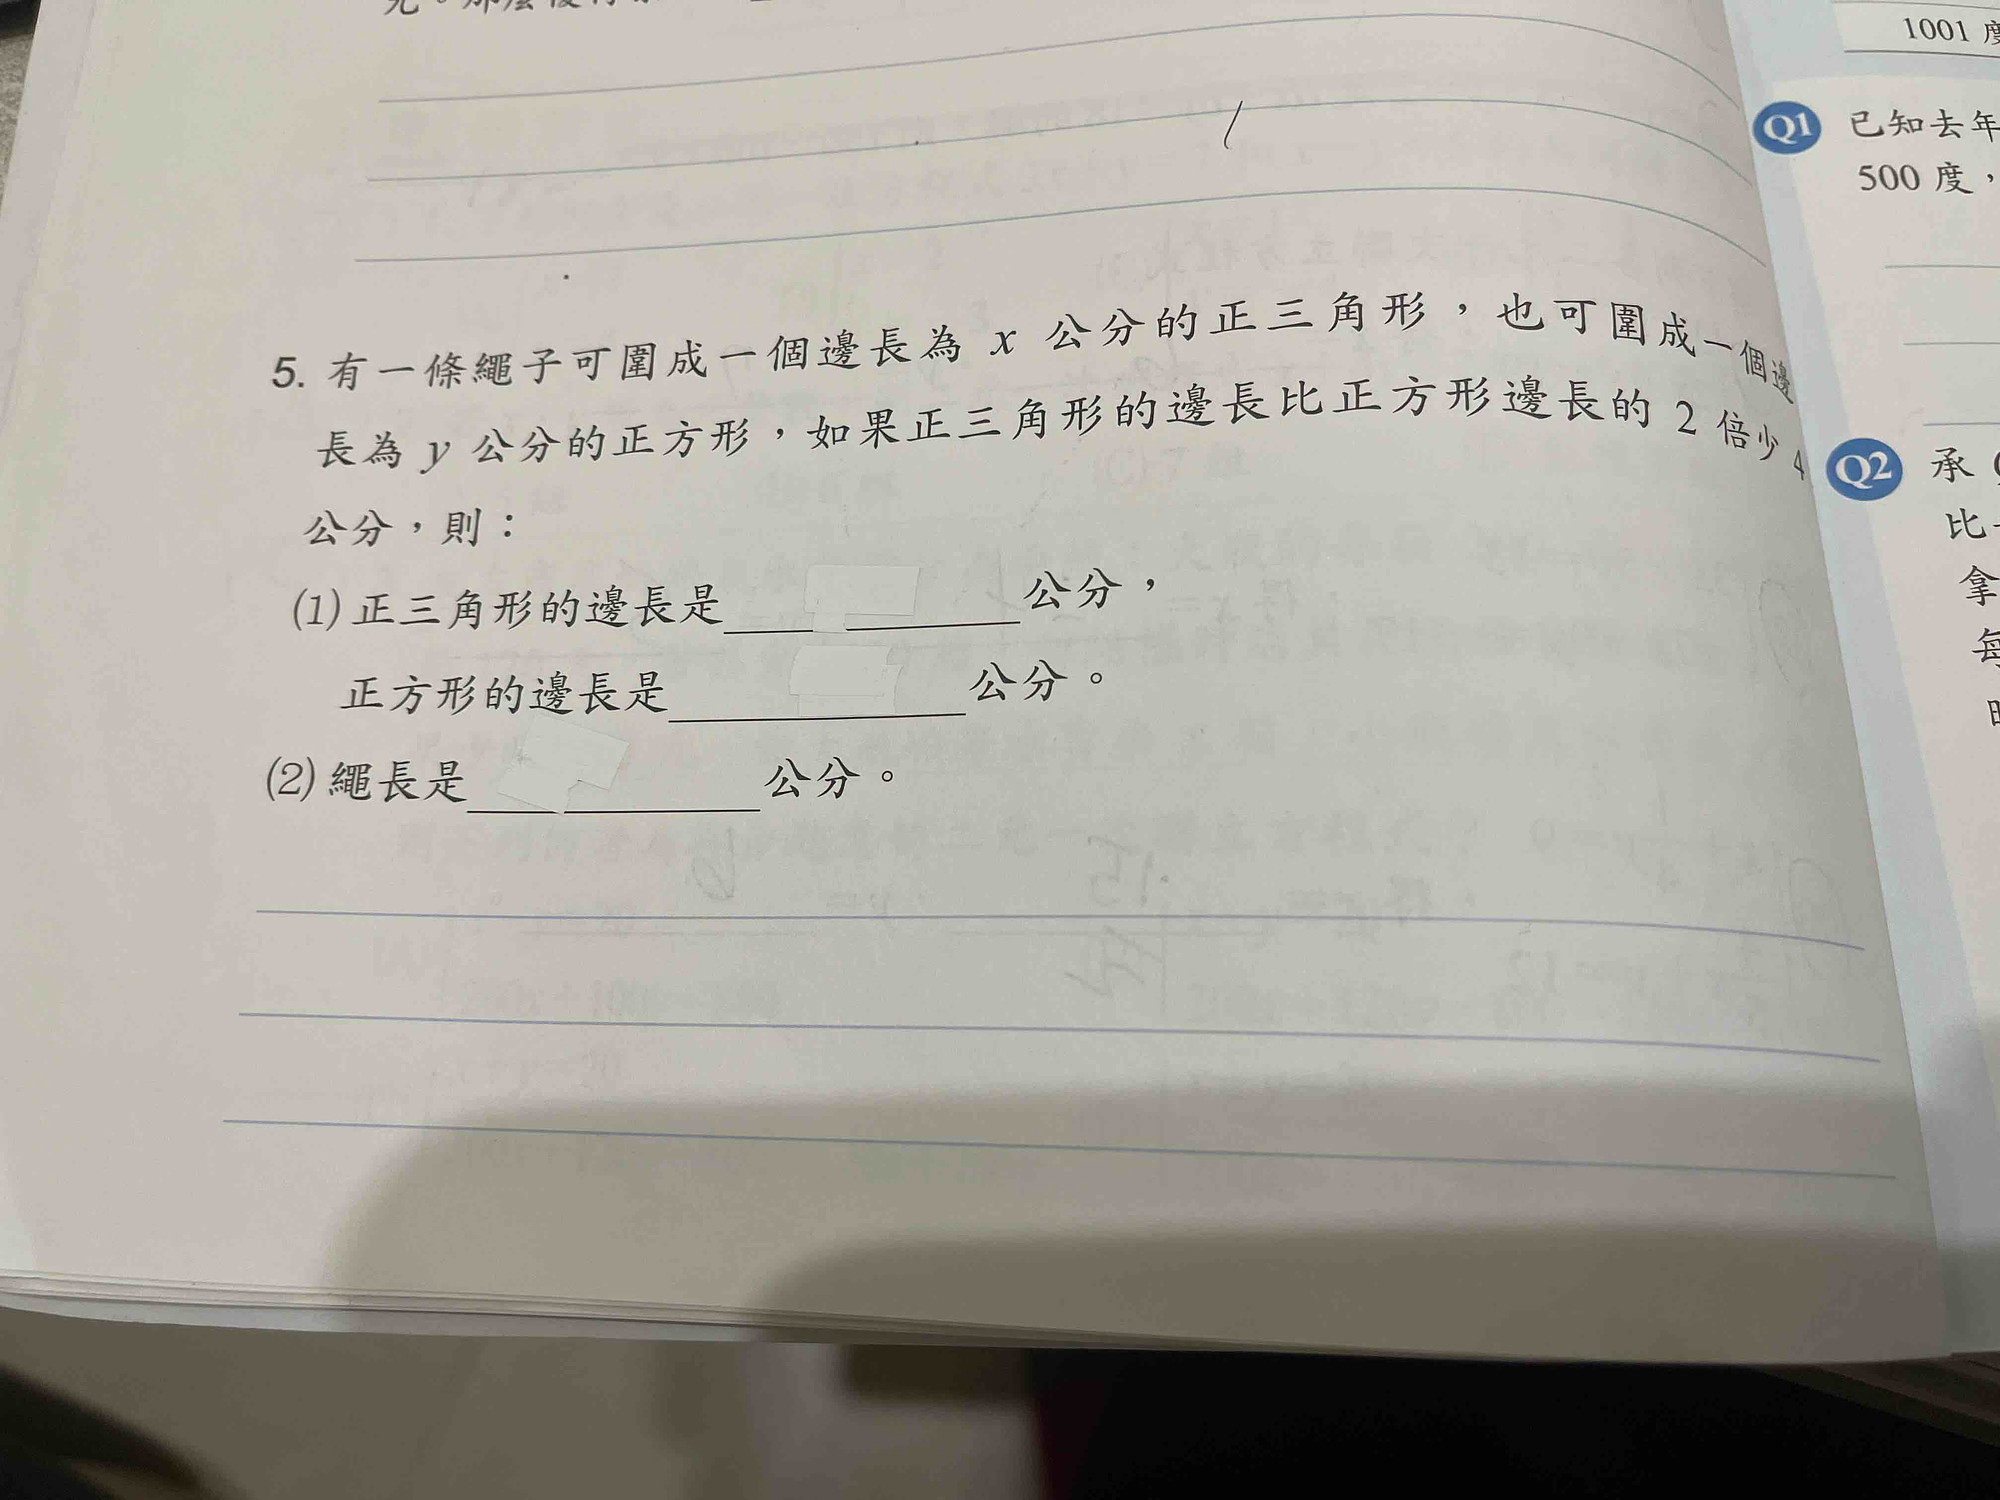 5. 有一條繩子可圍成一個邊長為 x 公分的正三角形，也可圍成一個邊
長為 y 公分的正方形，如果正三角形的邊長比正方形邊長的 2 倍少 4
公分，則：
(1) 正三角形的邊長是 公分，
正方形的邊長是 公分。
(2) 繩長是 公分。
1001 度
Q1 已知去年
500 度，
Q2 承
比
拿
每